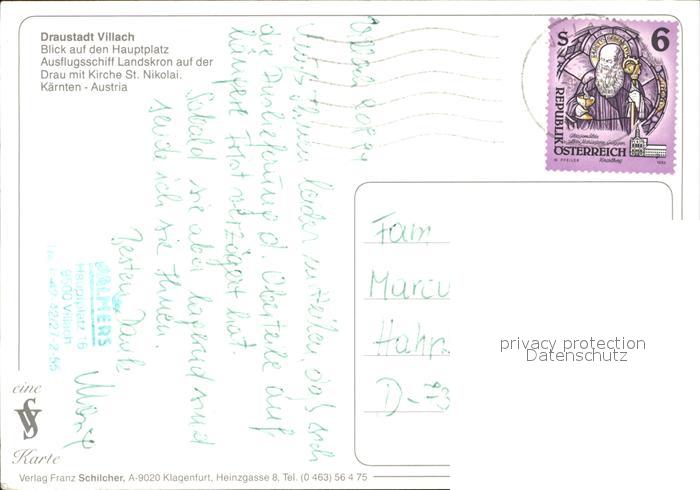 Draustadt Villach
Blick auf den Hauptplatz
Ausflugsschiff Landskron auf der
Drau mit Kirche St. Nikolai.
Kärnten - Austria
S 6
REPUBLIK
ÖSTERREICH
Muß Ihnen leider mitteilen, daß sich
die Auslieferung d. Oberteile auf
längere Frist verzögert hat.
Sobald sie aber lagernd sind
sende ich sie Ihnen.
Besten Dank
PALMERS
Hauptplatz 16
9500 Villach
Fam
Marcu
Hahn
D-73
privacy protection
Datenschutz
eine
Karte
Verlag Franz Schilcher, A-9020 Klagenfurt, Heinzgasse 8, Tel. (0 463) 56 4 75